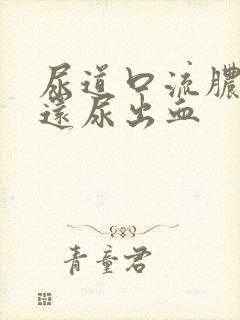 尿道口流膿
還尿出血
青童君